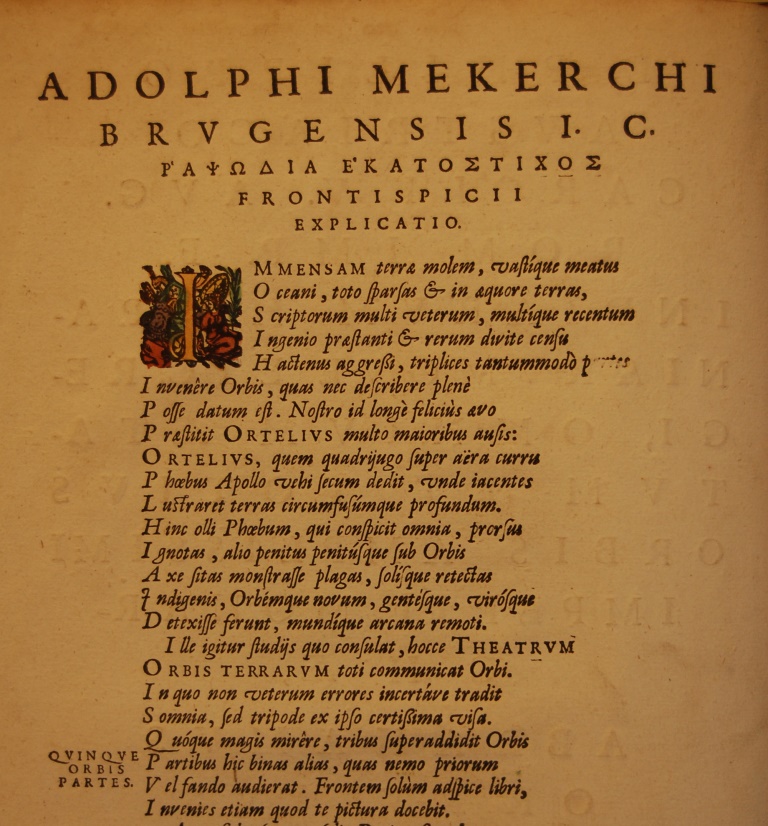 ADOLPHI MEKERCHI
BRVGENSIS I. C.
Ρ῾ΑΨΩΔΙΑ Ε῾ΚΑΤΟΣΤΙΧΟΣ
FRONTISPICII
EXPLICATIO.
IMMENSAM terræ molem, vastíque meatus
Oceani, toto sparsas & in æquore terras,
Scriptorum multi veterum, multíque recentum
Ingenio præstanti & rerum divite censu
Hactenus aggreßi, triplices tantummodò
Invenêre Orbis, quas nec describere plenè
Posse datum est. Nostro id longè feliciùs ævo
Præstitit ORTELIVS multo maioribus ausis:
ORTELIVS, quem quadrijugo super aëra curru
Phœbus Apollo vehi secum dedit, vnde iacentes
Lustraret terras circumfusúmque profundum.
Hinc olli Phœbum, qui conspicit omnia, prorsus
Ignotas, alio penitus penitúsque sub Orbis
Axe sitas monstrasse plagas, solísque retectas
Indigenis, Orbémque novum, gentésque, virósque
Detexisse ferunt, mundíque arcana remoti.
Ille igitur studijs quo consulat, hocce THEATRVM
ORBIS TERRARVM toti communicat Orbi.
In quo non veterum errores incertáve tradit
Somnia, sed tripode ex ipso certißima visa.
Quóque magis mirêre, tribus superaddidit Orbis
QVINQVE
ORBIS
PARTES.
Partibus hic binas alias, quas nemo priorum
Vel fando audierat. Frontem solùm adspice libri,
Invenies etiam quod te pictura docebit.